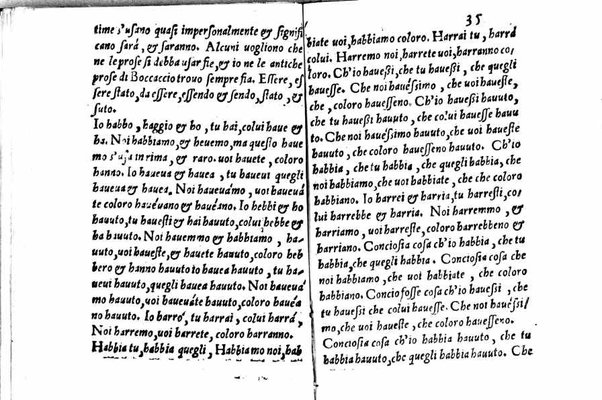 time s'usano quasi impersonalmente & signifi
cano sarà, & saranno. Alcuni uogliono che
ne le prose si debba usar fie, & io ne le antiche
prose di Boccaccio trovo sempre fia. Essere, es
sere stato, da essere, essendo & sendo, stato, &
suto.
Io habbo, haggio & ho, tu hai, colui haue &
ha. Noi habbiamo, & hauemo, ma questo haue
mo s'usa in rima, & raro. uoi hauete, coloro
hanno. Io haueua & hauea, tu haueui quegli
haueua & hauea. Noi haueuámo, uoi haueuá
te coloro hauéuano & hauéano. Io hebbi & ho
hauuto, tu hauesti & hai hauuto, colui hebbe &
ha hauuto. Noi hauemmo & habbiamo, ha-
uuto, uoi haueste, & hauete hauuto, coloro heb
bero & hanno hauuto to hauea hauuto, tu ha-
ueui hauuto, quegli hauea hauuto. Noi haueuá
mo hauuto, uoi haueuáte hauuto, coloro hauéa
no hauuto. Io harrò, tu harrai, colui harrá,
Noi harremo, uoi harrete, coloro harranno.
Habbia tu, habbia quegli, Habbiamo noi, hab
35
biate uoi, habbiamo coloro. Harrai tu, harrá
colui. Harremo noi, harrete uoi, harranno co/
loro. Ch'io hauessi, che tu hauessi, che quegli
hauesse. Che noi hauéssimo, che uoi haueste,
che, coloro hauesseno. Ch'io hauessi hauuto,
che tu hauessi hauuto, che colui hauesse hauu
to. Che noi hauéssimo hauuto, che uoi haueste
hauuto, che coloro hauesseno hauuto. Ch'io
habbia, che tu habbia, che quegli habbia, che
noi habbiamo, che uoi habbiate, che che coloro
habbiano. Io harrei & harria, tu harresti, co/
lui harrebbe & harria. Noi harremmo, &
harriamo, uoi harreste, coloro harrebbeno &
harriano. Conciosia cosa ch'io habbia, che tu
habbia, che quegli habbia. Conciosia cosa che
noi habbiamo, che uoi habbiate, che coloro
habbiano. Conciofosse cosa ch'io hauessi, che
tu hauessi che colui hauesse. Che noi hauéssi/
mo, che uoi haueste, che coloro hauesseno.
Conciosia cosa ch'io habbia hauuto, che tu
habbia hauuto, che quegli habbia hauuto. Che